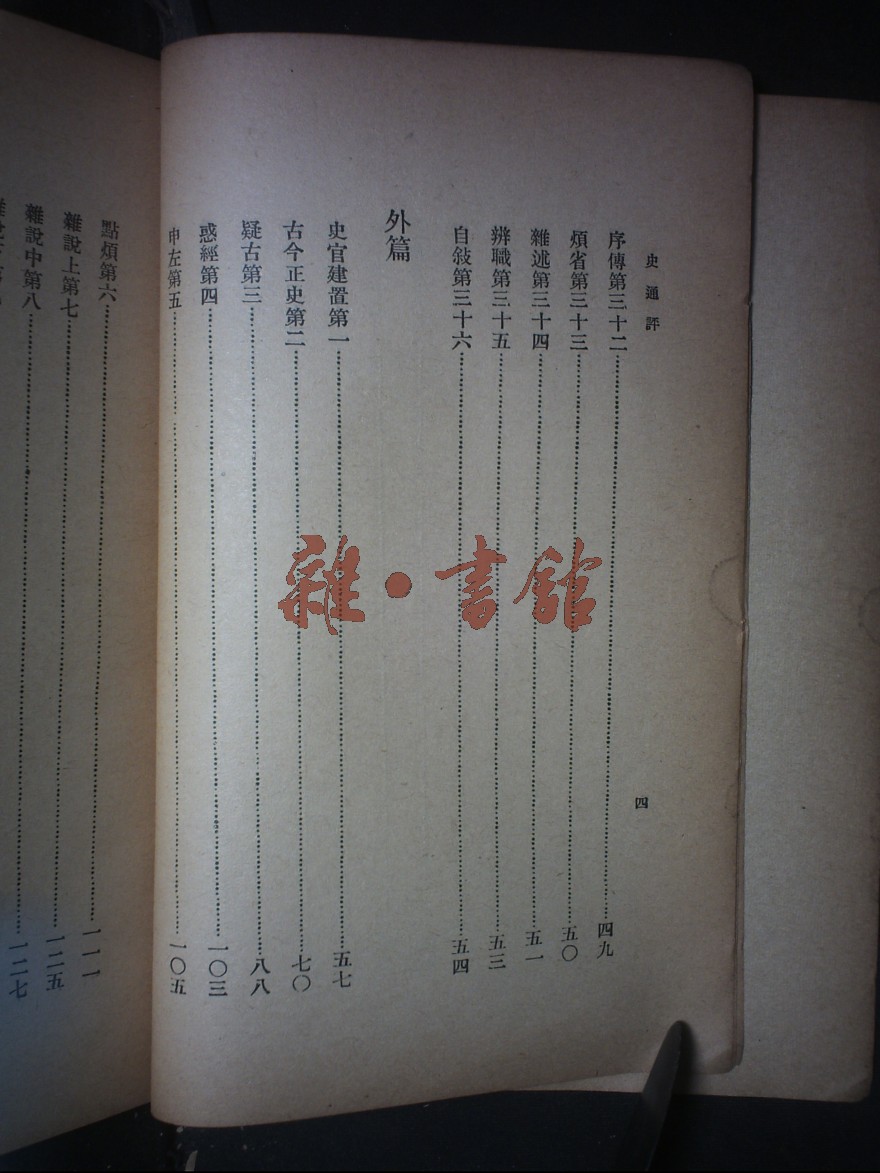 史通評
四
序傳第三十二……四九
煩省第三十三……五〇
雜述第三十四……五一
辨職第三十五……五三
自敍第三十六……五四
外篇
史官建置第一……五七
古今正史第二……七〇
疑古第三……八八
惑經第四……一〇三
申左第五……一〇五
點煩第六……一一一
雜說上第七……一二五
雜說中第八……一二七
雜·書館